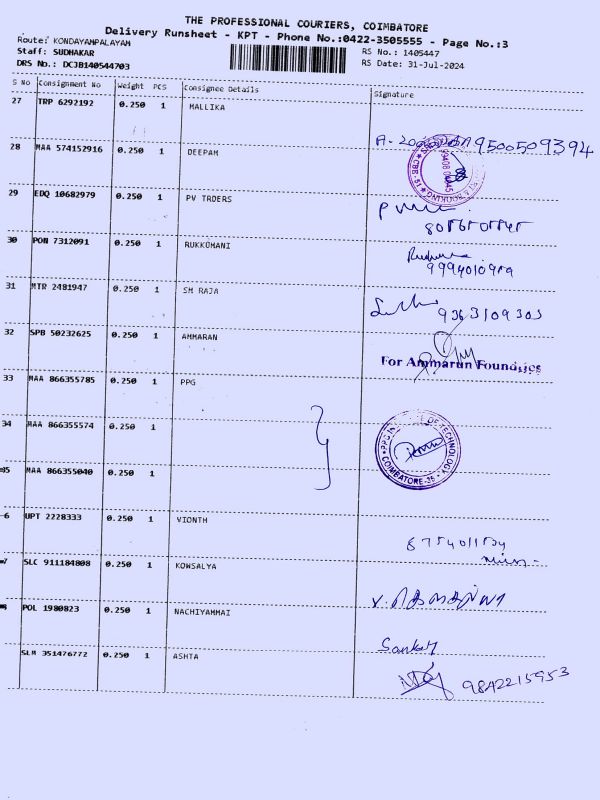 THE PROFESSIONAL COURIERS, COIMBATORE
Delivery Runsheet - KPT - Phone No.:0422-3505555 - Page No.:3
Route: KONDAYAMPALAYAM
Staff: SUDHAKAR
DRS No.: DCJB140544703
RS No.: 1405447
RS Date: 31-Jul-2024
S No Consignment No Weight PCS Consignee Details Signature
27 TRP 6292192 0.250 1 MALLIKA
9500509394
28 MAA 574152916 0.250 1 DEEPAM
29 EDQ 10682979 0.250 1 PV TRDERS
30 PON 7312091 0.250 1 RUKKUMANI
31 MTR 2481947 0.250 1 SM RAJA
9363109303
32 SPB 50232625 0.250 1 AMMARAN
For Ammarun Foundries
33 MAA 866355785 0.250 1 PPG
34 MAA 866355574 0.250 1
OF TECHNOLOGY
COIMBATORE-35
35 MAA 866355040 0.250 1
6 UPT 2228333 0.250 1 VIONTH
7 SLC 911184808 0.250 1 KOWSALYA
8 POL 1980823 0.250 1 NACHIYAMMAI
SLM 351476772 0.250 1 ASHTA
9842215953